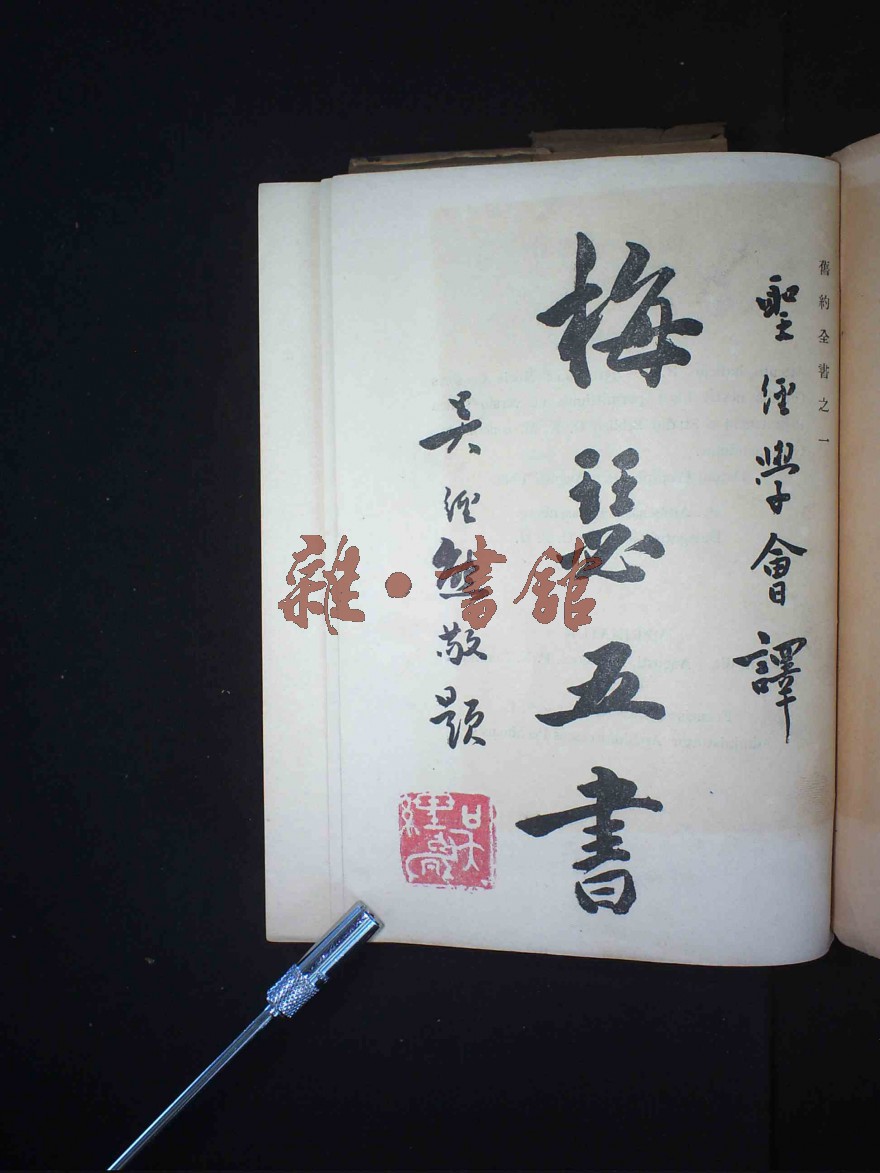 舊約全書之一
聖經學會譯
梅瑟五書
吳經熊敬題
吳經熊
雜·書館